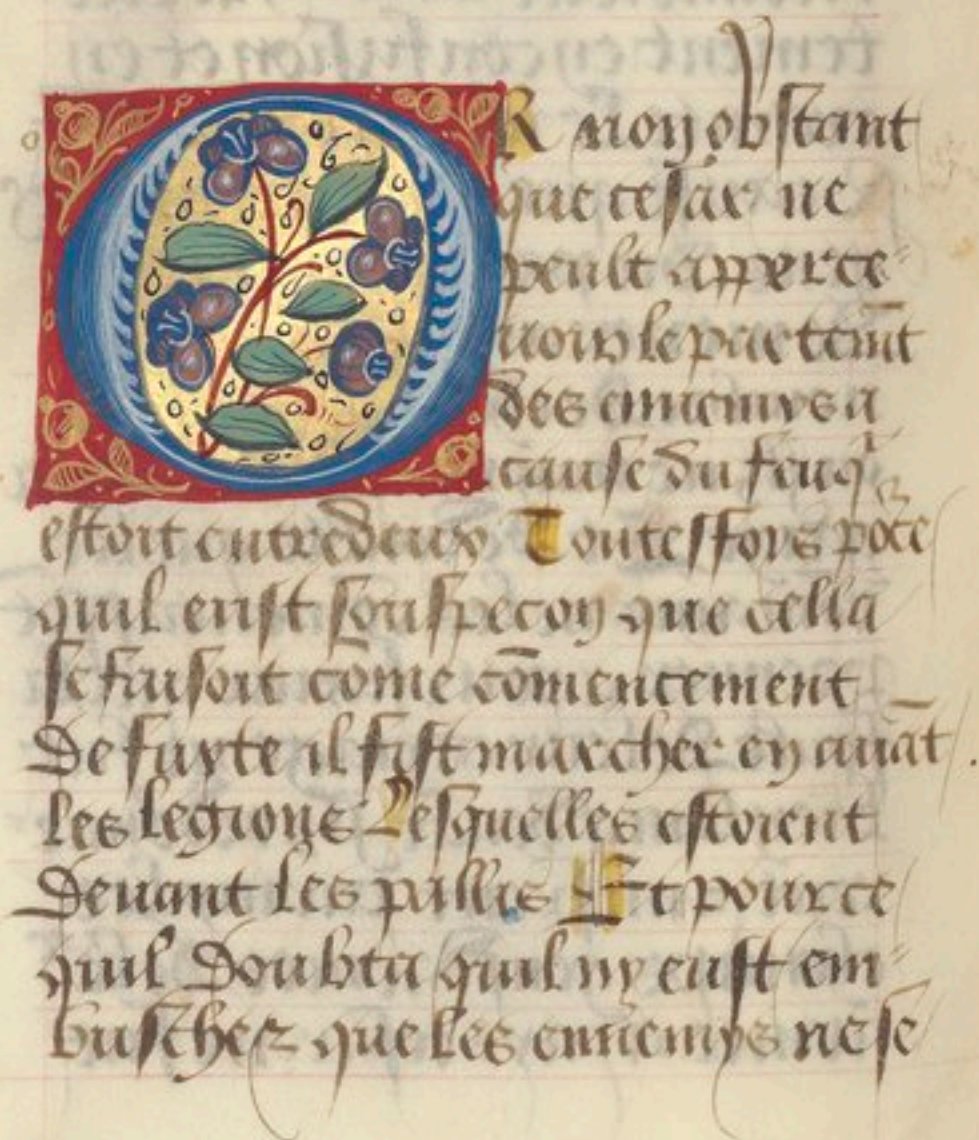 OR non obstant
que cesar ne
peult apperce-
uoir le partem̄t
des ennemys a
cause du feu qⁱ
estoit entredeux Toutesfoys poᵣce
quil eust souspecon que cella
se faisoit cōme cōmencement
de fuyte il fist marcher en auāt
les legions Lesquelles estoient
deuant les pallis Et pource
quil doubta quil ny eust em-
busche ⁊ que les ennemys ne se